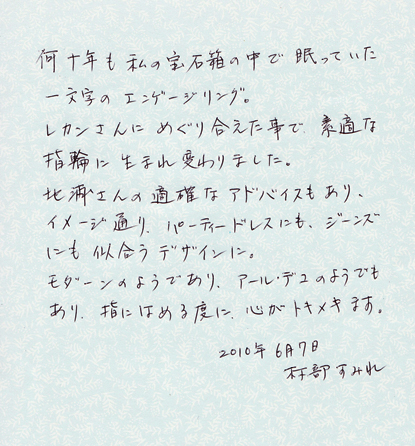 何十年も私の宝石箱の中で眠っていた
一文字のエンゲージリング。
レカンさんにめぐり合えた事で、素適な
指輪に生まれ変わりました。
北浦さんの適確なアドバイスもあり、
イメージ通り、パーティードレスにも、ジーンズ
にも似合うデザインに。
モダーンのようであり、アール・デコのようでも
あり、指にはめる度に、心がトキメキます。
2010年6月7日
すみれ